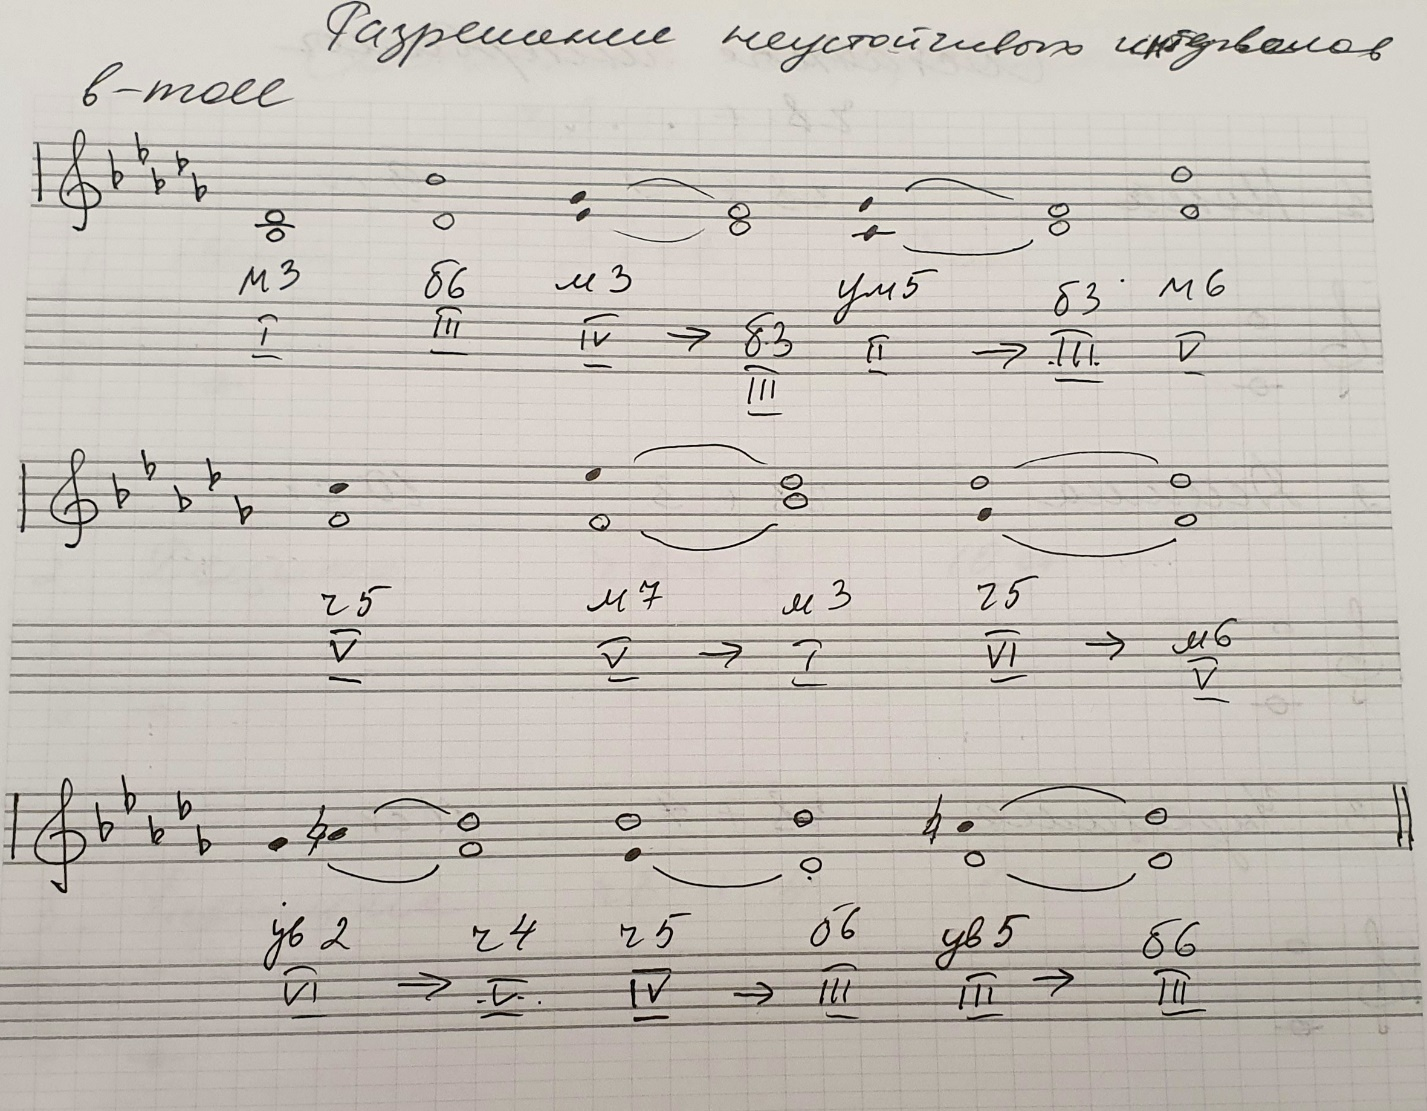 Разрешение неустойчивых интервалов
b-moll
м3 б6 м3 ум5 б3 м6
I III IV → б3 II → III V
III
ч5 м7 м3 ч5
V V → I VI → м6
V
ув2 ч4 ч5 б6 ув5 б6
VI → V IV → III III → III